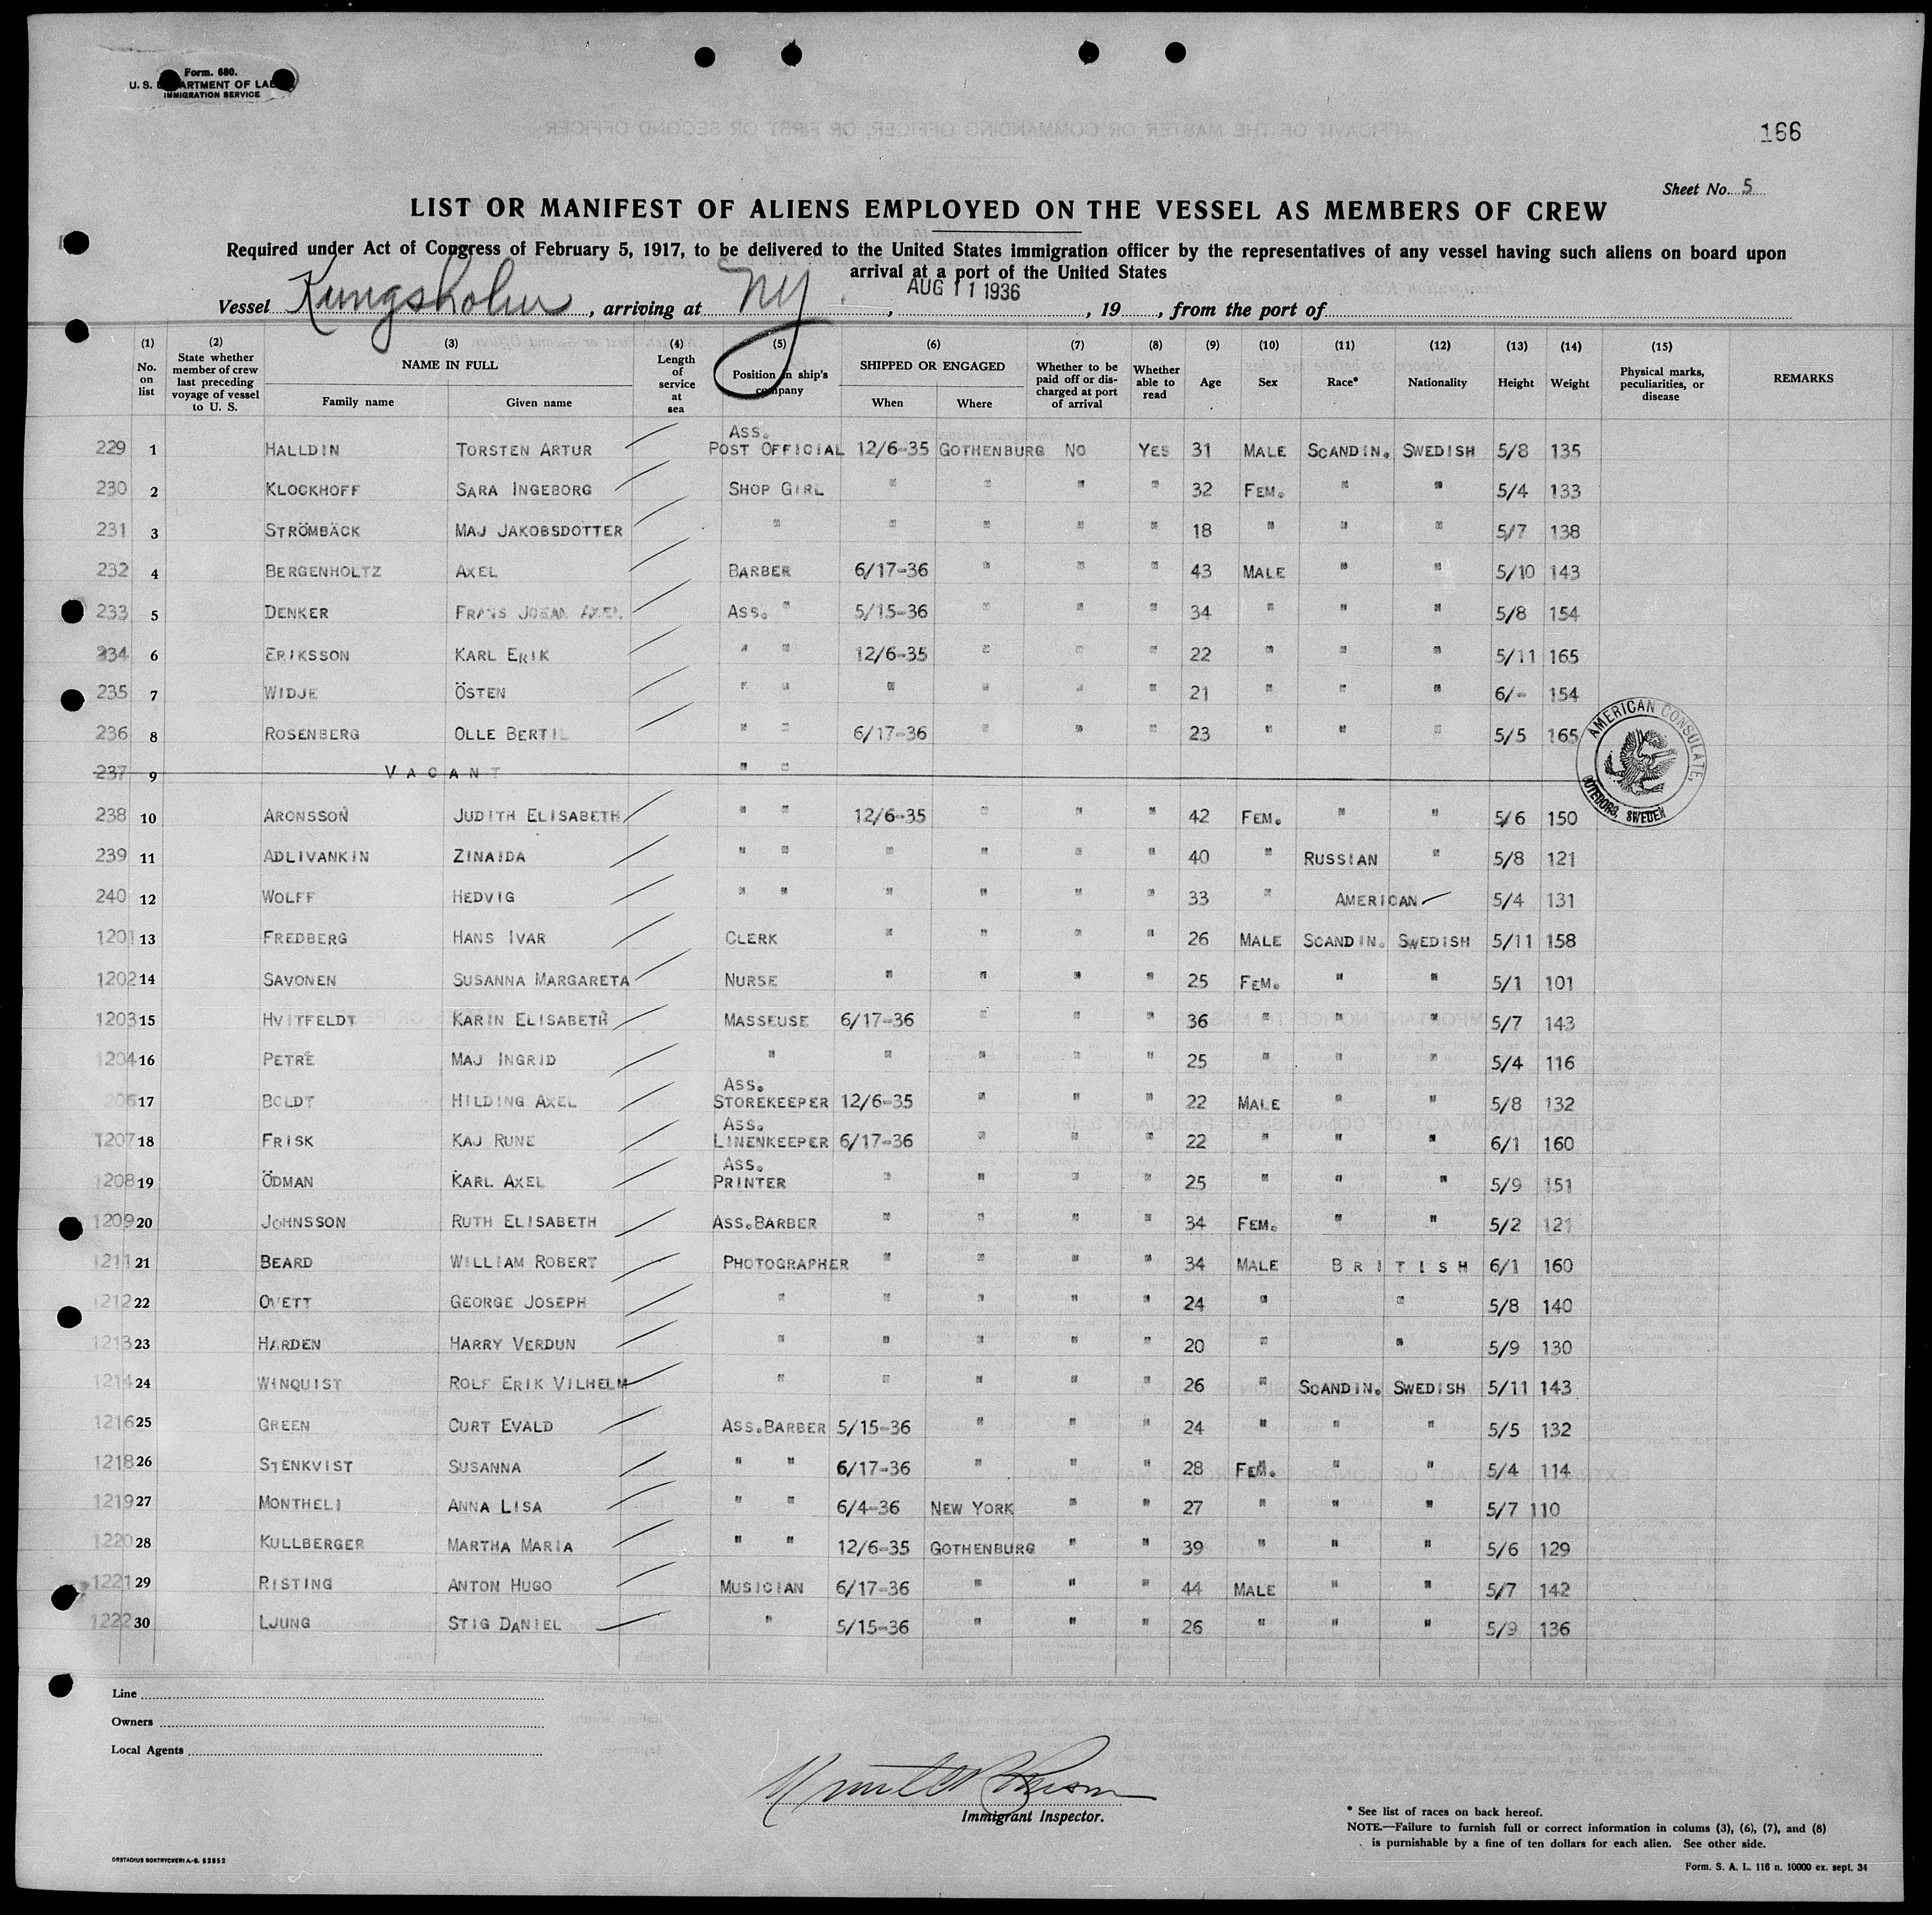 Form. 680.
U. S. DEPARTMENT OF LABOR
IMMIGRATION SERVICE
166
Sheet No. 5
LIST OR MANIFEST OF ALIENS EMPLOYED ON THE VESSEL AS MEMBERS OF CREW
Required under Act of Congress of February 5, 1917, to be delivered to the United States immigration officer by the representatives of any vessel having such aliens on board upon
arrival at a port of the United States
Vessel Kungsholm, arriving at NY. , AUG 11 1936, 19 , from the port of
(1) No. on list (2) State whether member of crew last preceding voyage of vessel to U. S. (3) NAME IN FULL Family name Given name (4) Length of service at sea (5) Position in ship's company (6) SHIPPED OR ENGAGED When Where (7) Whether to be paid off or discharged at port of arrival (8) Whether able to read (9) Age (10) Sex (11) Race* (12) Nationality (13) Height (14) Weight (15) Physical marks, peculiarities, or disease REMARKS
229 1 HALLDIN TORSTEN ARTUR ASS. POST OFFICIAL 12/6-35 GOTHENBURG NO YES 31 MALE SCANDIN. SWEDISH 5/8 135
230 2 KLOCKHOFF SARA INGEBORG SHOP GIRL " " " " 32 FEM. " " 5/4 133
231 3 STRÖMBÄCK MAJ JAKOBSDOTTER " " " " " 18 " " " 5/7 138
232 4 BERGENHOLTZ AXEL BARBER 6/17-36 " " " 43 MALE " " 5/10 143
233 5 DENKER FRANS JOHAN AXEL ASS. " 5/15-36 " " " 34 " " " 5/8 154
234 6 ERIKSSON KARL ERIK " " 12/6-35 " " " 22 " " " 5/11 165
235 7 WIDJE ÖSTEN " " " " " " 21 " " " 6/- 154
236 8 ROSENBERG OLLE BERTIL " " 6/17-36 " " " 23 " " " 5/5 165
237 9 VACANT " "
238 10 ARONSSON JUDITH ELISABETH " " 12/6-35 " " " 42 FEM. " " 5/6 150
239 11 ADLIVANKIN ZINAIDA " " " " " " 40 " RUSSIAN " 5/8 121
240 12 WOLFF HEDVIG " " " " " " 33 " AMERICAN 5/4 131
1201 13 FREDBERG HANS IVAR CLERK " " " " 26 MALE SCANDIN. SWEDISH 5/11 158
1202 14 SAVONEN SUSANNA MARGARETA NURSE " " " " 25 FEM. " " 5/1 101
1203 15 HVITFELDT KARIN ELISABETH MASSEUSE 6/17-36 " " " 36 " " " 5/7 143
1204 16 PETRÉ MAJ INGRID " " " " " 25 " " " 5/4 116
206 17 BOLDT HILDING AXEL ASS. STOREKEEPER 12/6-35 " " " 22 MALE " " 5/8 132
1207 18 FRISK KAJ RUNE ASS. LINENKEEPER 6/17-36 " " " 22 " " " 6/1 160
1208 19 ÖDMAN KARL AXEL ASS. PRINTER " " " " 25 " " " 5/9 151
1209 20 JOHNSSON RUTH ELISABETH ASS.BARBER " " " " 34 FEM. " " 5/2 121
1211 21 BEARD WILLIAM ROBERT PHOTOGRAPHER " " " " 34 MALE BRITISH 6/1 160
1212 22 OVETT GEORGE JOSEPH " " " " " 24 " " 5/8 140
1213 23 HARDEN HARRY VERDUN " " " " " 20 " " 5/9 130
1214 24 WINQUIST ROLF ERIK VILHELM " " " " " 26 " SCANDIN. SWEDISH 5/11 143
1216 25 GREEN CURT EVALD ASS.BARBER 5/15-36 " " " 24 " " " 5/5 132
1218 26 STENKVIST SUSANNA " " 6/17-36 " " " 28 FEM. " " 5/4 114
1219 27 MONTHELI ANNA LISA " " 6/4-36 NEW YORK " " 27 " " " 5/7 110
1220 28 KULLBERGER MARTHA MARIA " " 12/6-35 GOTHENBURG " " 39 " " " 5/6 129
1221 29 RISTING ANTON HUGO MUSICIAN 6/17-36 " " " 44 MALE " " 5/7 142
1222 30 LJUNG STIG DANIEL " 5/15-36 " " " 26 " " " 5/9 136
AMERICAN CONSULATE, GÖTEBORG, SWEDEN
Line
Owners
Local Agents
Immigrant Inspector.
* See list of races on back hereof.
NOTE.—Failure to furnish full or correct information in colums (3), (6), (7), and (8)
is punishable by a fine of ten dollars for each alien. See other side.
ORSTADIUS BOKTRYCKERI A.-B. 53852
Form. S. A. L. 116 n. 10000 ex. sept. 34